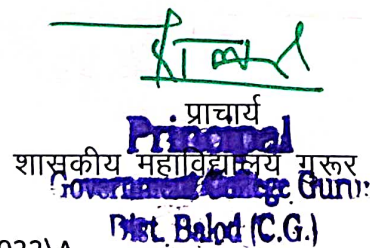 प्राचार्य
Principal
शासकीय महाविद्यालय गुरूर
Government College Gurur
Dist. Balod (C.G.)